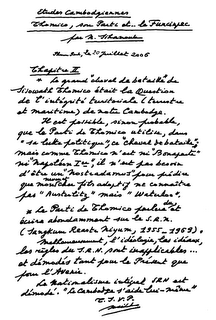 Etudes Cambodgiennes
Thomico, son Parti et... le Funcinpec
par N. Sihanouk
le 20 Juillet 2006
Chapitre II
* Le grand cheval de bataille de
Sisowath Thomico était la Question
de l'intégrité territoriale (terrestre
et maritime) de notre Cambodge.
Il est possible, sinon probable,
que le Parti de Thomico utilise, dans
"sa lutte politique", ce "cheval de bataille";
mais comme Thomico n'est ni "Bonaparte"
ni "Napoléon Ier", il n'est pas besoin
d'être un "Nostradamus" pour prédire
que monsieur fils adoptif ne connaîtra
pas "Austerlitz" mais "Waterloo".
* Le Parti de Thomico parlera et
écrira abondamment sur le S.R.N.
(Sangkum Reastr Niyum, 1955-1969).
Malheureusement, l'idéologie, les idéaux,
les règles du S.R.N. sont inapplicables...
et démodés tant pour le Présent que
pour l'Avenir.
Le Nationalisme intégral SRN est
démodé. "Le Cambodge s'aide lui-même"